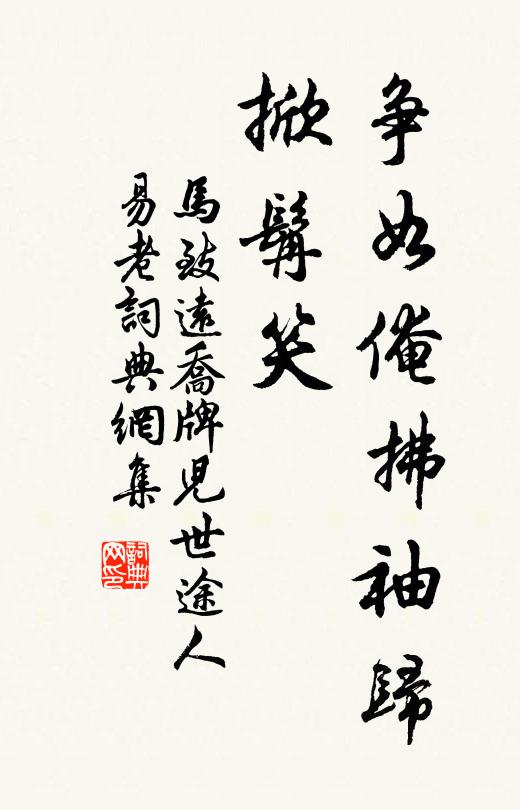 爭如俺拂袖歸
掀髯笑
馬致遠喬牌兒世途人
易老詞典網集
詞典
网印